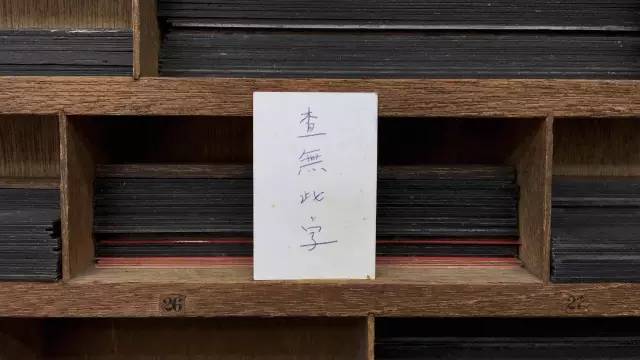 查無此字
26
27